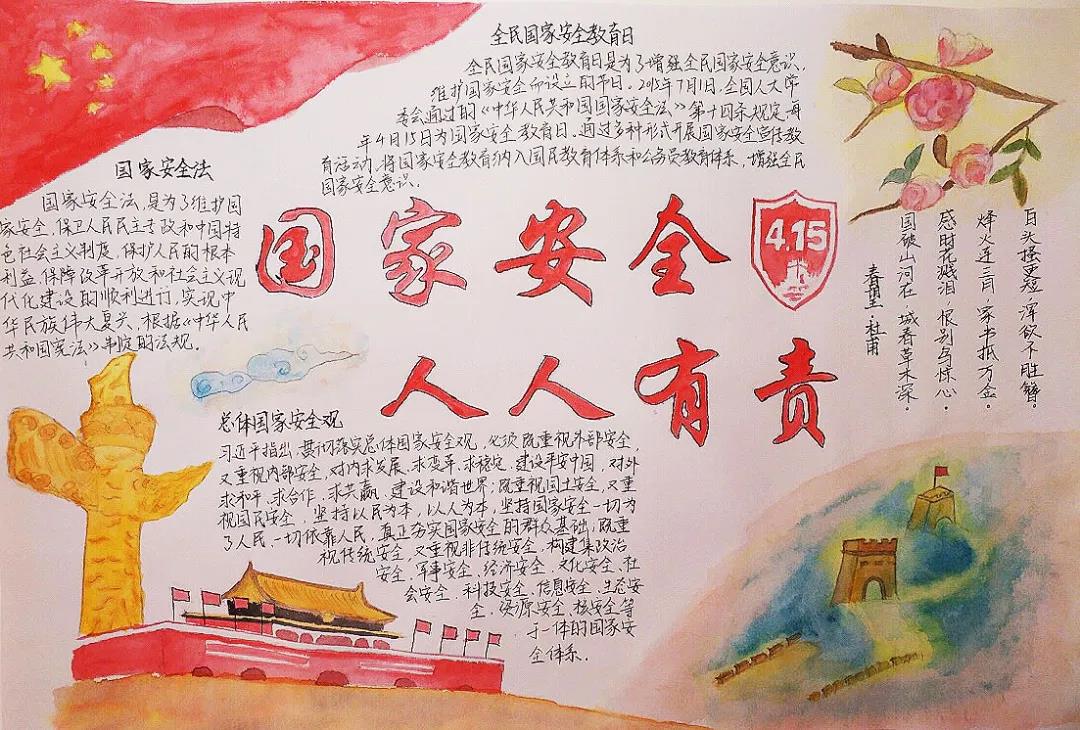 全民国家安全教育日
全民国家安全教育日是为了增强全民国家安全意识,
维护国家安全而设立的节日。2015年7月1日,全国人大常
委会通过的《中华人民共和国国家安全法》第十四条规定,每
年4月15日为国家安全教育日。通过多种形式开展国家安全宣传教
育活动,将国家安全教育纳入国民教育体系和公务员教育体系,增强全民
国家安全意识。
国家安全法
国家安全法,是为了维护国
家安全,保卫人民民主专政和中国特
色社会主义制度,保护人民的根本
利益,保障改革开放和社会主义现
代化建设的顺利进行,实现中
华民族伟大复兴,根据《中华人民
共和国宪法》制定的法规。
国家安全
4.15
人人有责
白头搔更短,浑欲不胜簪。
烽火连三月,家书抵万金。
感时花溅泪,恨别鸟惊心。
国破山河在,城春草木深。
春望·杜甫
总体国家安全观
习近平指出,贯彻落实总体国家安全观,必须既重视外部安全,
又重视内部安全,对内求发展、求变革、求稳定、建设平安中国,对外
求和平、求合作、求共赢、建设和谐世界;既重视国土安全,又重
视国民安全,坚持以民为本,以人为本,坚持国家安全一切为
了人民,一切依靠人民,真正夯实国家安全的群众基础;既重
视传统安全,又重视非传统安全,构建集政治
安全、军事安全、经济安全、文化安全、社
会安全、科技安全、信息安全、生态安
全、资源安全、核安全等
于一体的国家安
全体系。